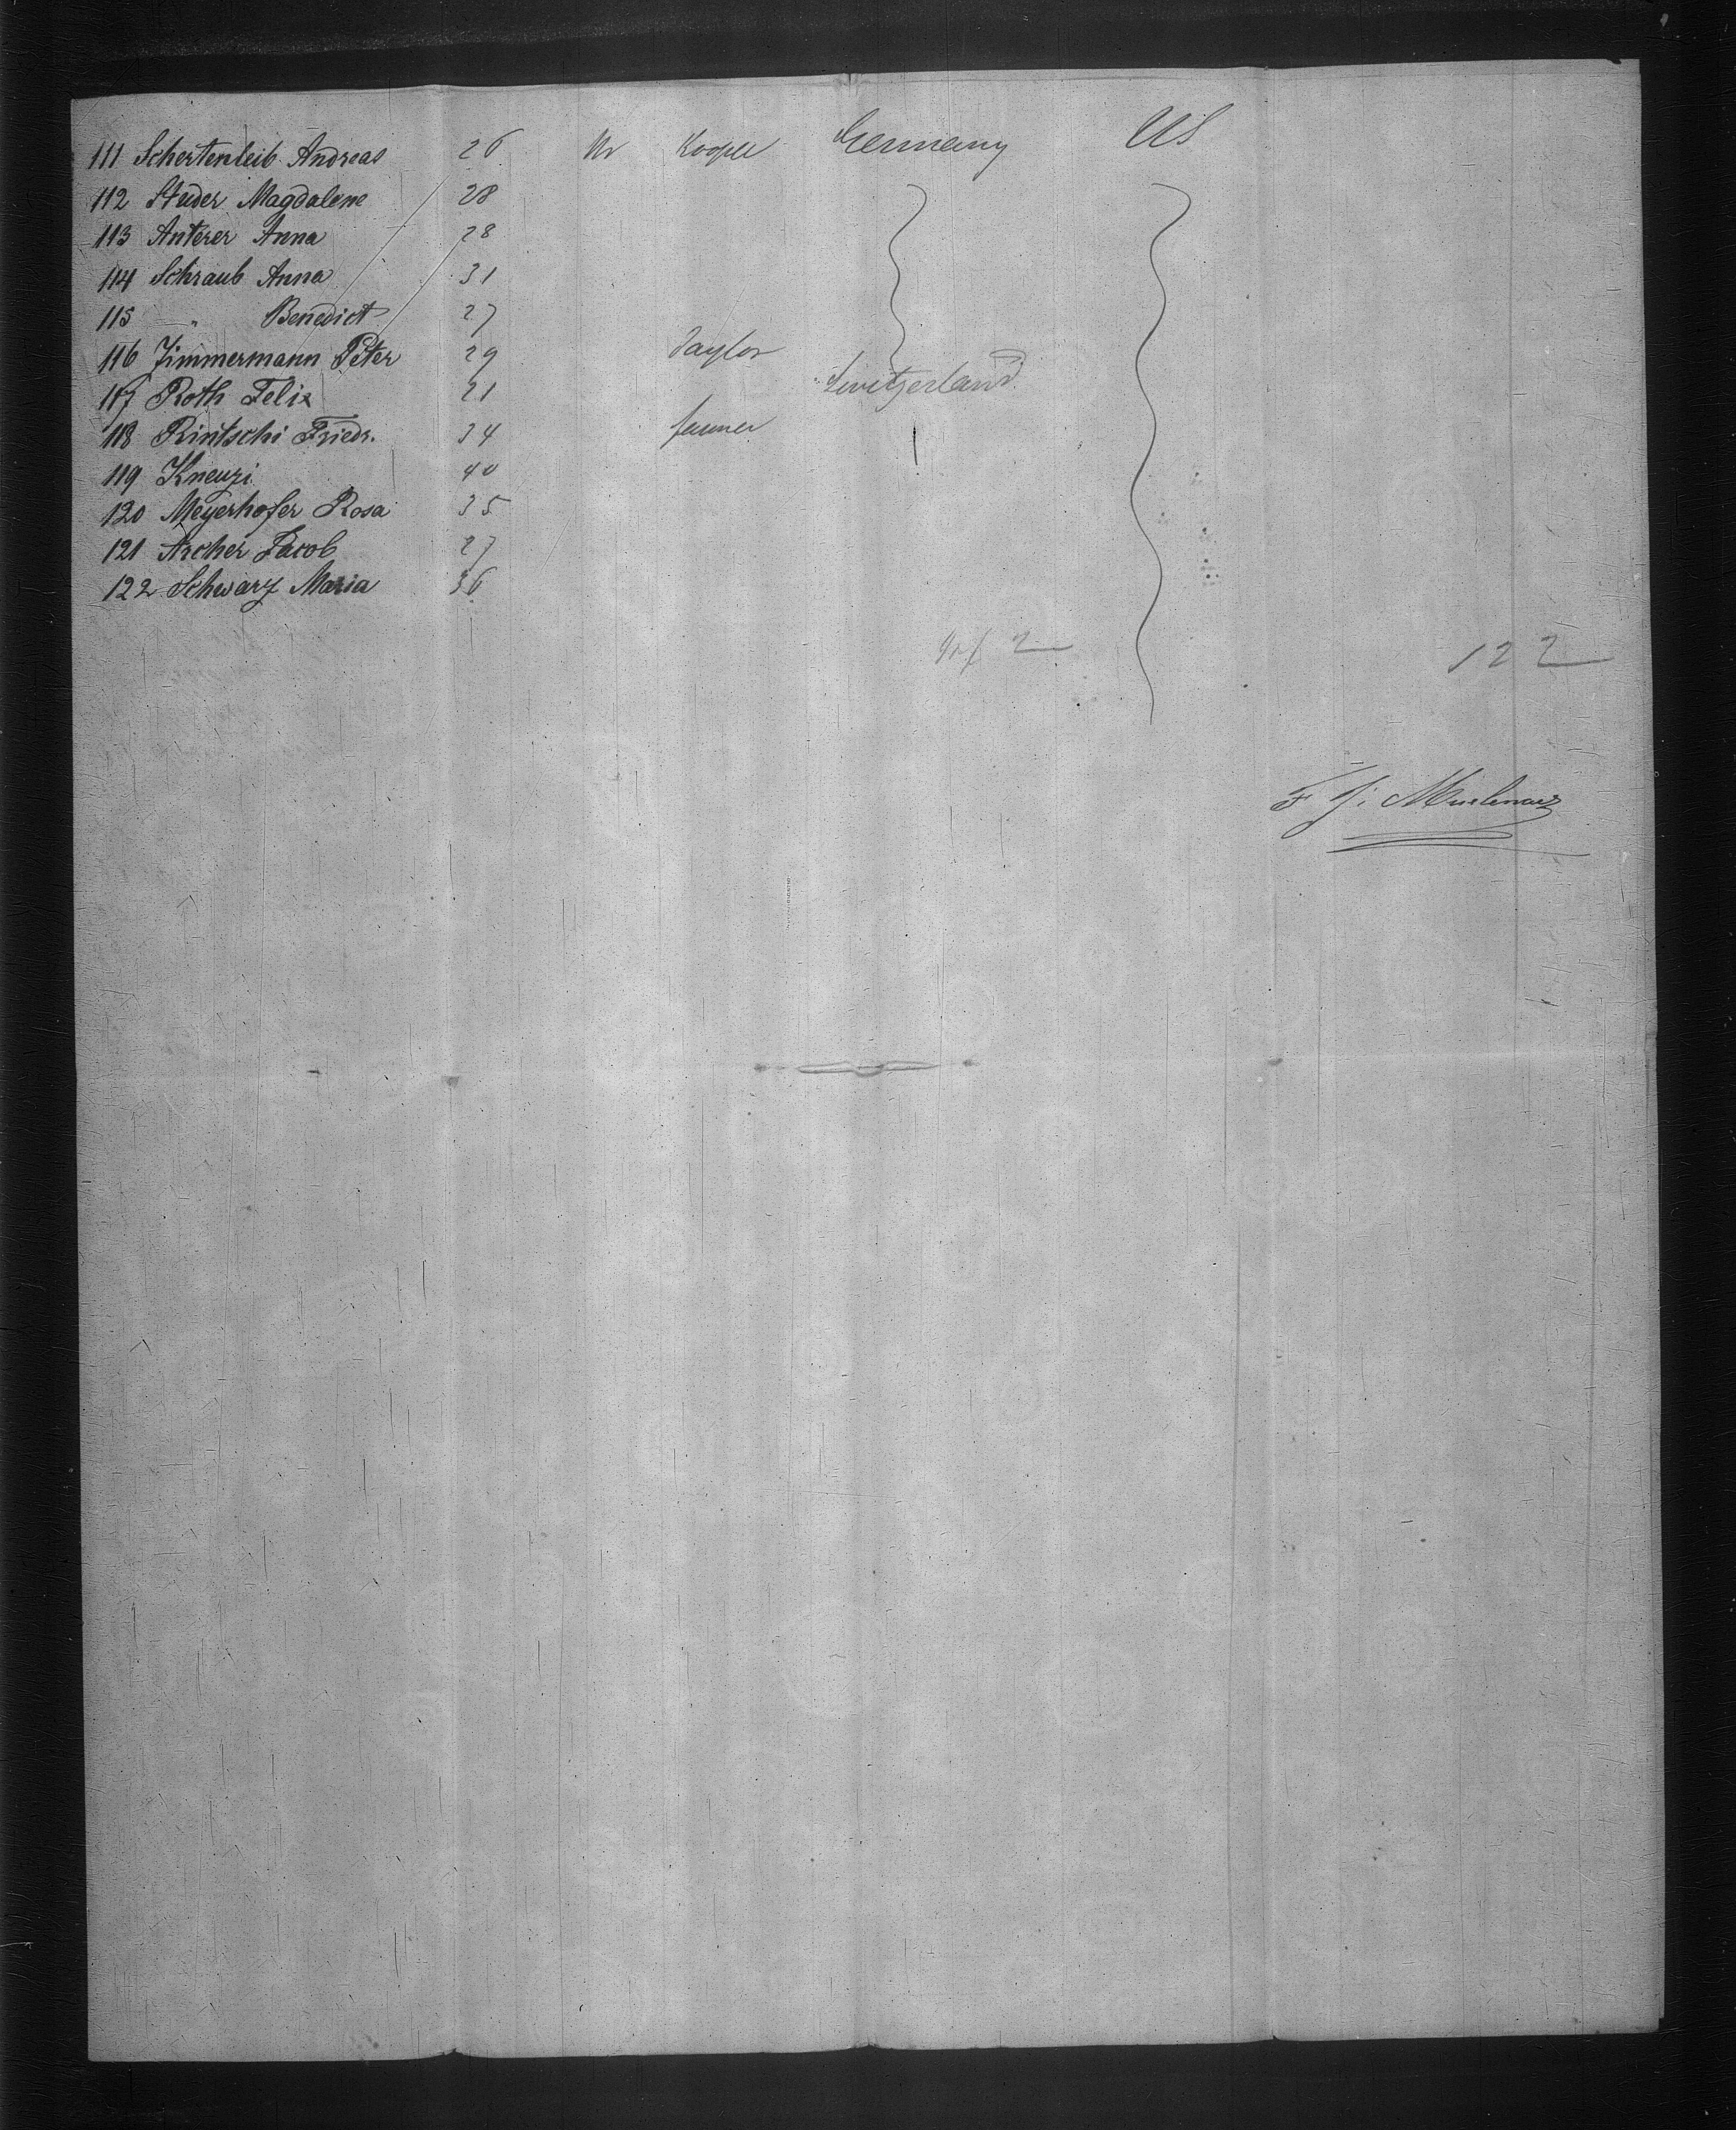 111 Schertenleib Andreas 26 Kooper Germany US
112 Studer Magdalene 28
113 Anterer Anna 28
114 Schraub Anna 31
115 " Benedict 27
116 Zimmermann Peter 29 Taylor
117 Roth Felix 21 Switzerland
118 Rintschi Friedr. 34 farmer
119 Kneuzi 40
120 Meyerhofer Rosa 35
121 Archer Jacob 27
122 Schwarz Maria 36
122